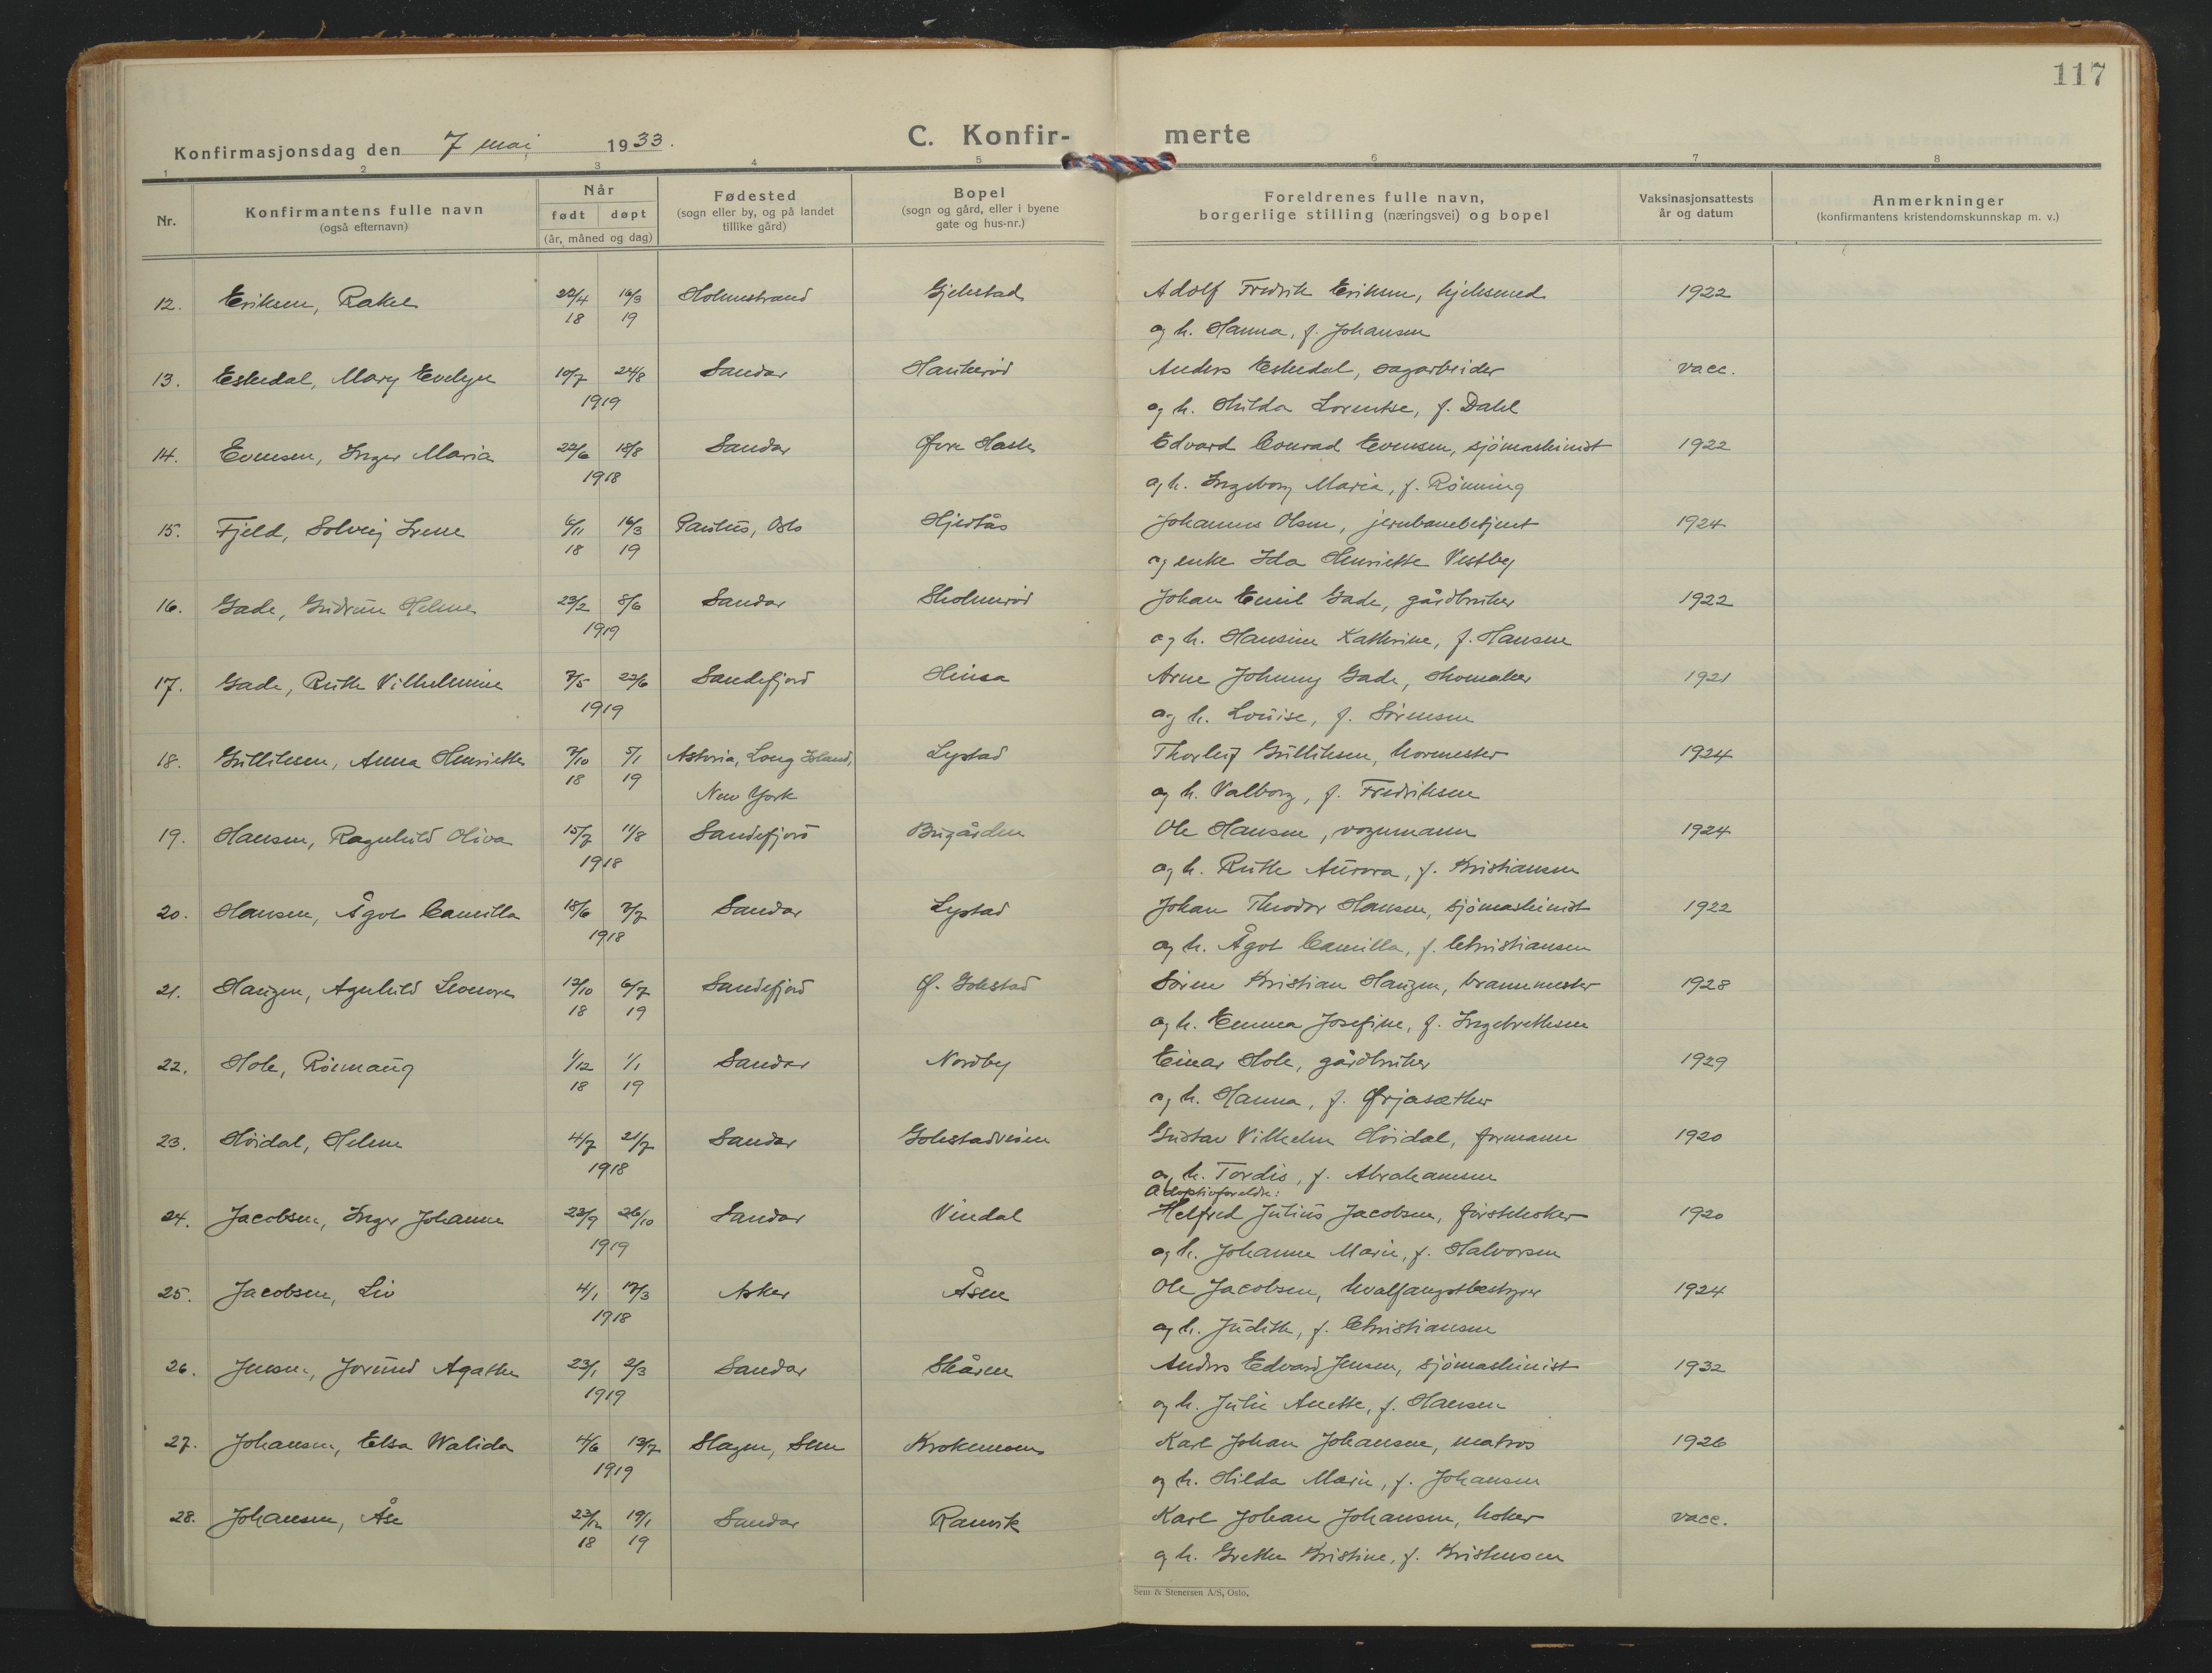 117
Konfirmasjonsdag den 7 mai 1933.
C. Konfir- merte
1 2 3 4 5 6 7 8
Nr.
Konfirmantens fulle navn
(også efternavn)
Når
født døpt
(år, måned og dag)
Fødested
(sogn eller by, og på landet
tillike gård)
Bopel
(sogn og gård, eller i byene
gate og hus-nr.)
Foreldrenes fulle navn,
borgerlige stilling (næringsvei) og bopel
Vaksinasjonsattests
år og datum
Anmerkninger
(konfirmantens kristendomskunnskap m. v.)
12. Eriksen, Rakel 22/4 16/3 Holmestrand Gjekstad Adolf Fredrik Eriksen, kjelesmed 1922
18 19 og h. Hanna, f. Johansen
13. Eskedal, Mary Evelyn 10/7 24/8 Sandar Haukerød Anders Eskedal, sagarbeider vacc.
1919 og h. Hilda Lorentse, f. Dahl
14. Evensen, Inger Maria 22/6 18/8 Sandar Øvre Hasle Edvard Conrad Evensen, sjömaskinist 1922
1918 og h. Ingeborg Maria, f. Rönning
15. Fjeld, Solveig Irene 6/11 16/3 Paulus, Oslo Hjertås Johannes Olsen, jernbanebetjent 1924
18 19 og enke Ida Henriette Vestby
16. Gade, Gudrun Helene 23/2 8/6 Sandar Skolmerød Johan Emil Gade, gårdbruker 1922
1919 og h. Hansine Kathrine, f. Hansen
17. Gade, Ruth Vilhelmine 7/5 22/6 Sandefjord Hinsa Arne Johnny Gade, skomaker 1921
1919 og h. Louise, f. Sörensen
18. Gulliksen, Anna Henriette 7/10 5/1 Astoria, Long Island, Lystad Thorleif Gulliksen, kormester 1924
18 19 New York og h. Valborg, f. Fredriksen
19. Hansen, Ragnhild Oliva 15/7 11/8 Sandefjord Bugården Ole Hansen, vognmann 1924
1918 og h. Ruth Aurora, f. Kristiansen
20. Hansen, Ågot Camilla 18/6 7/7 Sandar Lystad Johan Theodor Hansen, sjömaskinist 1922
1918 og h. Ågot Camilla, f. Christiansen
21. Haugen, Agnhild Leonore 13/10 6/7 Sandefjord Ø. Gokstad Sören Kristian Haugen, brannmester 1928
18 19 og h. Emma Josefine, f. Ingebrethsen
22. Hole, Römaug 1/12 1/1 Sandar Nordby Einar Hole, gårdbruker 1929
18 19 og h. Hanna, f. Ørjasæther
23. Höidal, Helene 4/7 21/7 Sandar Gokstadveien Gustav Vilhelm Höidal, formann 1920
1918 og h. Tordis, f. Abrahamsen
Adoptivforeldre:
24. Jacobsen, Inger Johanne 23/9 26/10 Sandar Vindal Helfred Julius Jacobsen, förstekoker 1920
1919 og h. Johanne Marie, f. Halvorsen
25. Jacobsen, Liv 4/1 17/3 Asker Åsen Ole Jacobsen, hvalfangstbestyrer 1924
1918 og h. Judith, f. Christiansen
26. Jensen, Jorund Agathe 23/1 2/3 Sandar Skåren Anders Edvard Jensen, sjömaskinist 1932
1919 og h. Julie Anette, f. Hansen
27. Johansen, Elsa Walida 4/6 13/7 Slagen, Sem Krokemoen Karl Johan Johansen, matros 1926
1919 og h. Hilda Marie, f. Johansen
28. Johansen, Åse 23/12 19/1 Sandar Ranvik Karl Johan Johansen, koker vacc.
18 19 og h. Grethe Kristine, f. Kristensen
Sem & Stenersen A/S, Oslo.